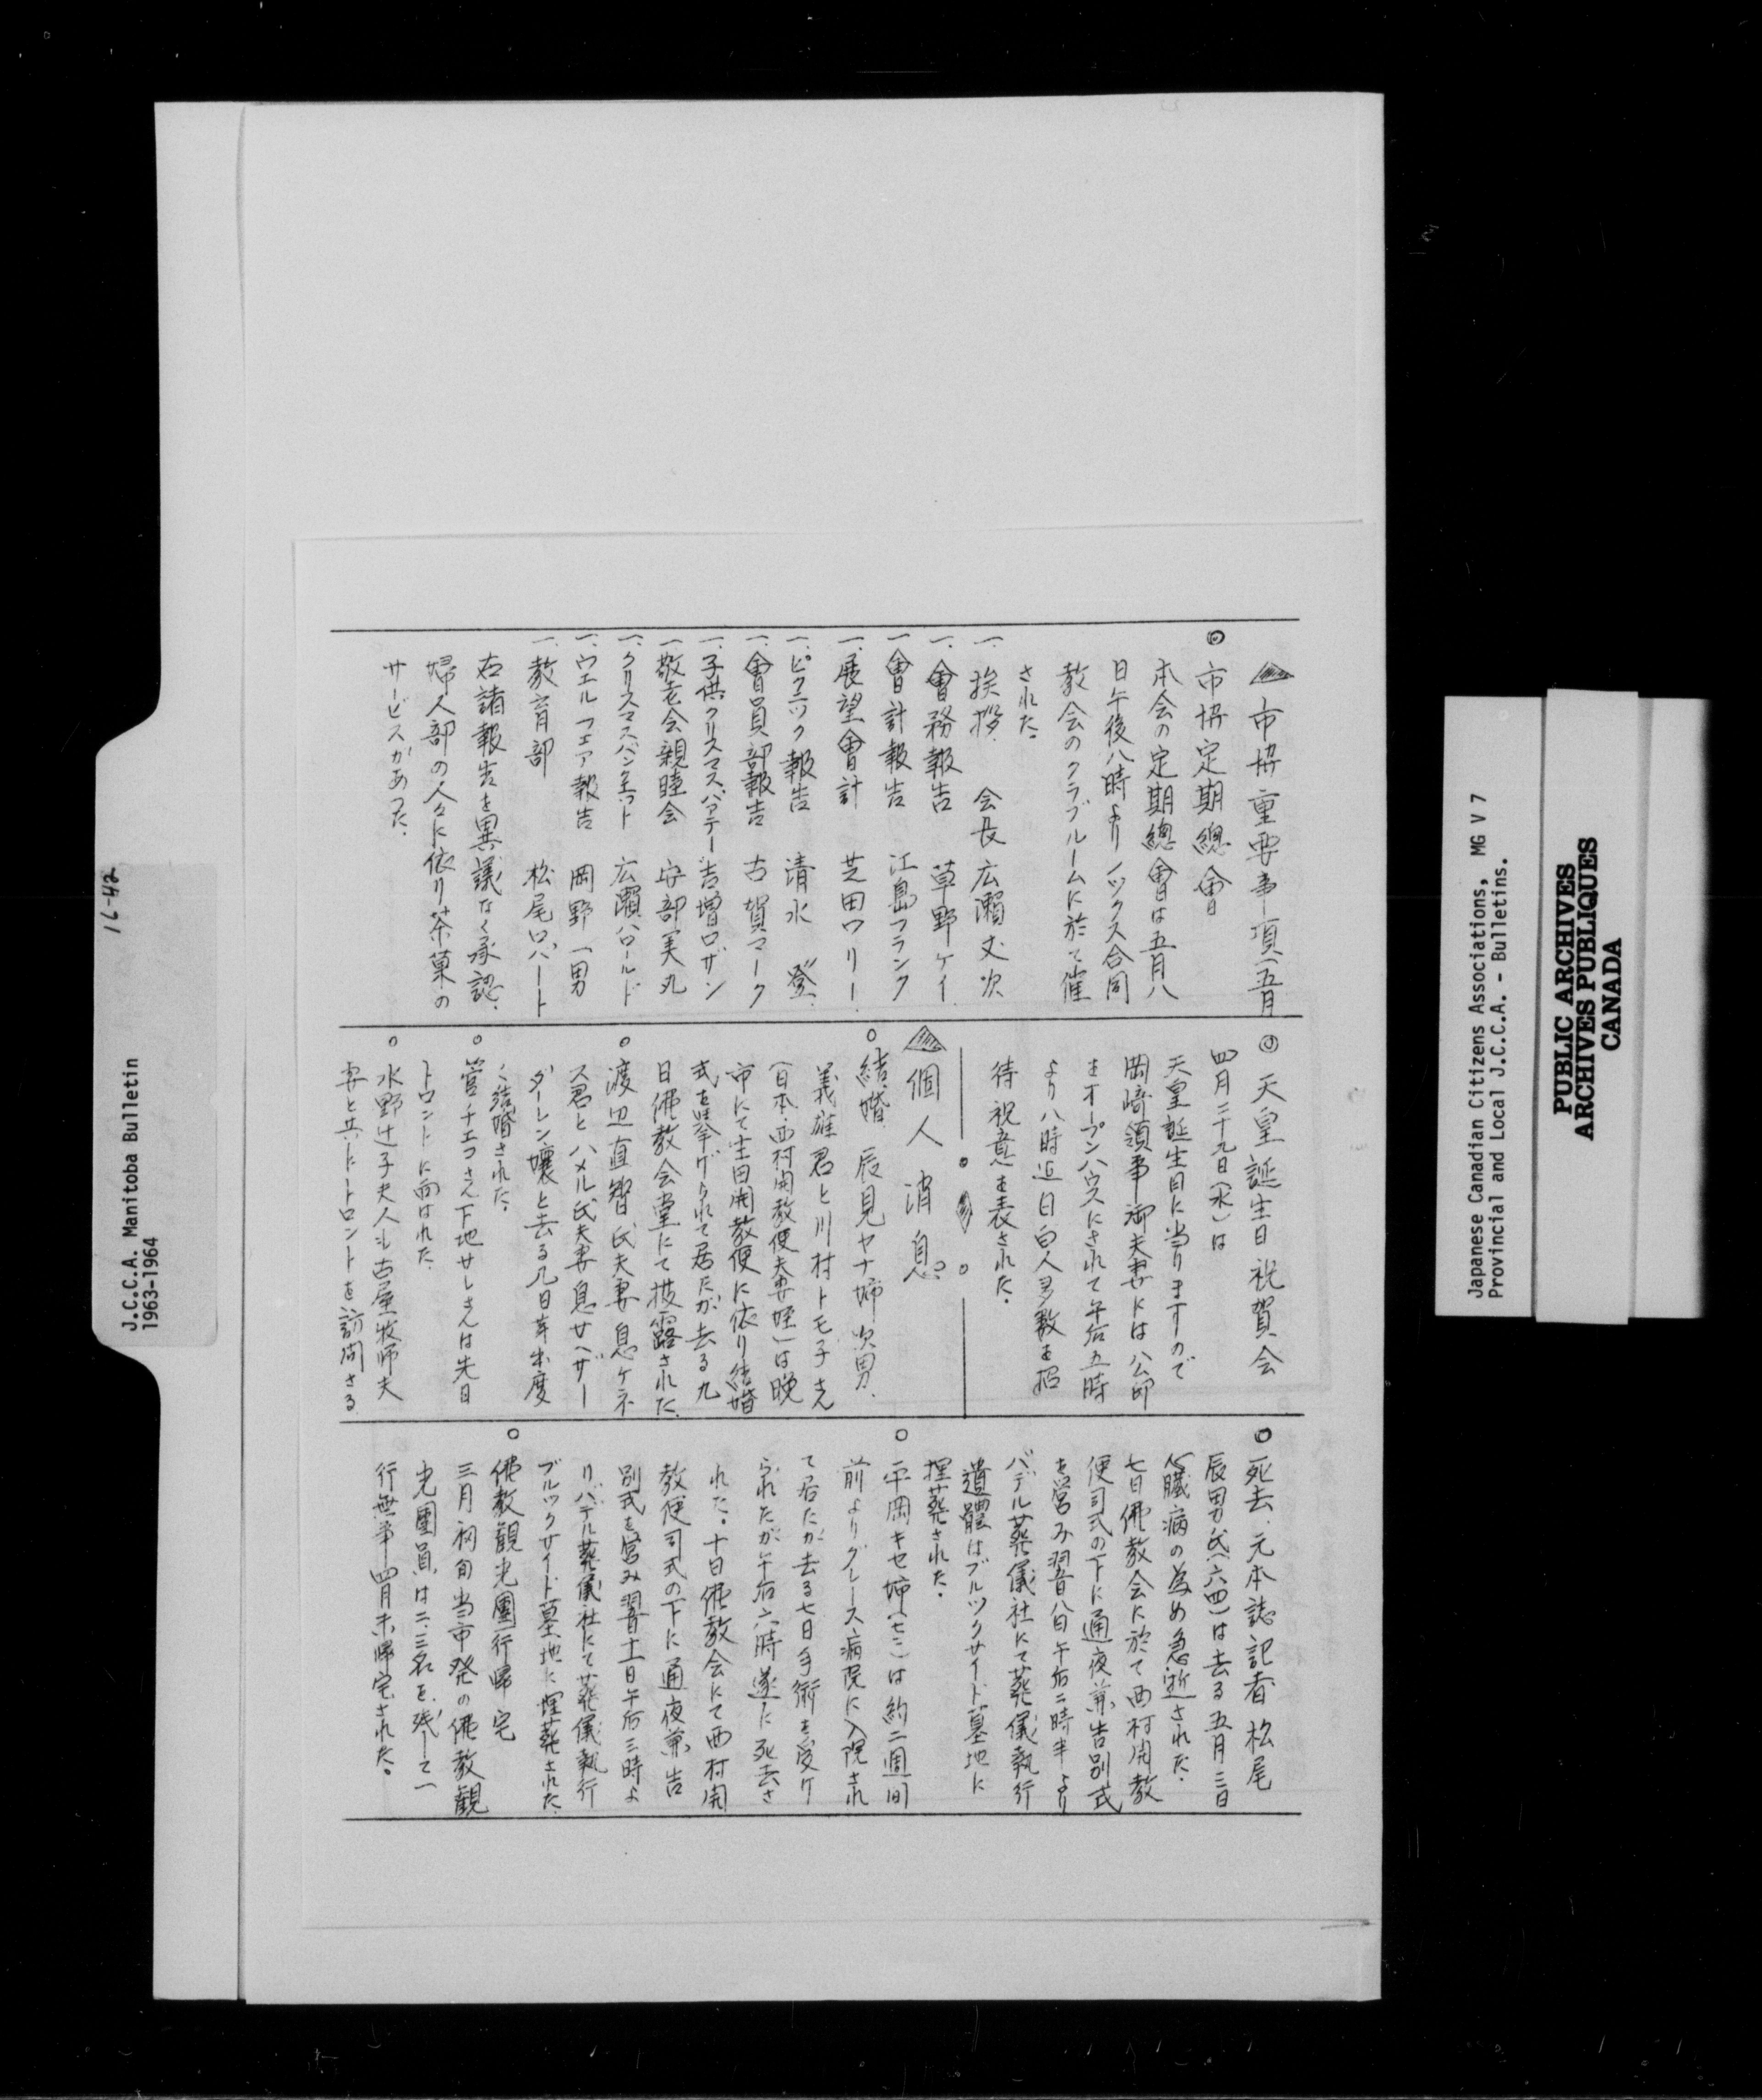 市協重要事項(五月
◎ 市協定期總會
本会の定期總會は五月八
日午後八時よりノックス合同
教会のクラブルームに於て催
された.
一. 挨拶 会長 広瀬丈次
一. 會務報告 草野ケイ
一 會計報告 江島フランク
一. 展望會計 芝田ワリー
一. ピクニック報告 清水 登
一. 會員部報告 古賀マーク
一. 子供クリスマスパーテー 吉増ロザン
一 敬老会親睦会 安部実丸
一. クリスマスバンケット 広瀬ハロールド
一. ウエルフェア報告 岡野一男
一. 教育部 松尾ロバート
右諸報告を異議なく承認.
婦人部の人々に依り茶菓の
サービスがあった.
◎ 天皇誕生日祝賀会
四月二十九日(水)は
天皇誕生日に当りますので
岡崎領事御夫妻には公邸
をオープンハウスにされて午后五時
より八時迄日白人多数を招
待祝意を表された.
個人消息
○ 結婚. 辰見ヤナ姉次男.
義雄君と川村トモ子さん
(日本.西村開教使夫妻姪)は晩
市にて生田開教使に依り結婚
式を挙げられて居たが去る九
日佛教会堂にて披露された.
○ 渡辺直智氏夫妻息ケネ
ス君とハメル氏夫妻息女ヘザー
ダーレン嬢と去る九日芽出度
く結婚された.
○ 菅チエコさん下地サレさんは先日
トロントに向はれた.
○ 水野辻子夫人も古屋牧師夫
妻と共にトロントを訪問さる.
○ 死去. 元本誌記者松尾
辰男氏(六四)は去る五月三日
心臓病の為め急逝された.
七日佛教会に於て西村開教
使司式の下に通夜兼告別式
を営み翌八日午后二時半より
バデル葬儀社にて葬儀執行
遺體はブルックサイド墓地に
埋葬された.
○ 平岡キセ姉(七二)は約二週間
前よりグレース病院に入院され
て居たが去る七日手術を受け
られたが午后六時遂に死去さ
れた. 十日佛教会にて西村開
教使司式の下に通夜兼告
別式を営み翌十一日午后三時よ
りバデル葬儀社にて葬儀執行
ブルックサイド墓地に埋葬された.
○ 佛教観光團一行帰宅
三月初旬当市発の佛教観
光團員は二.三名を残して一
行無事四月末帰宅された.
16-42
J.C.C.A. Manitoba Bulletin
1963-1964
Japanese Canadian Citizens Associations, MG V 7
Provincial and Local J.C.C.A. - Bulletins.
PUBLIC ARCHIVES
ARCHIVES PUBLIQUES
CANADA